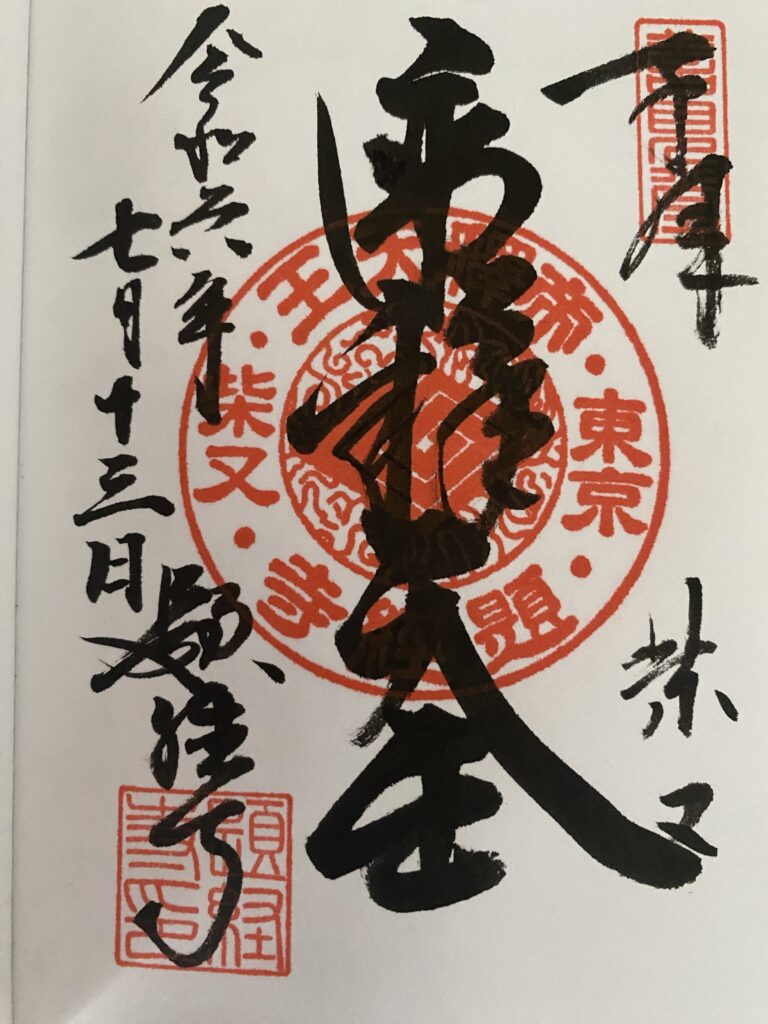 柴又
帝釋天王
令和六年
七月十三日
題経寺
帝釋天王
東京
柴又
題経寺
題経
寺印